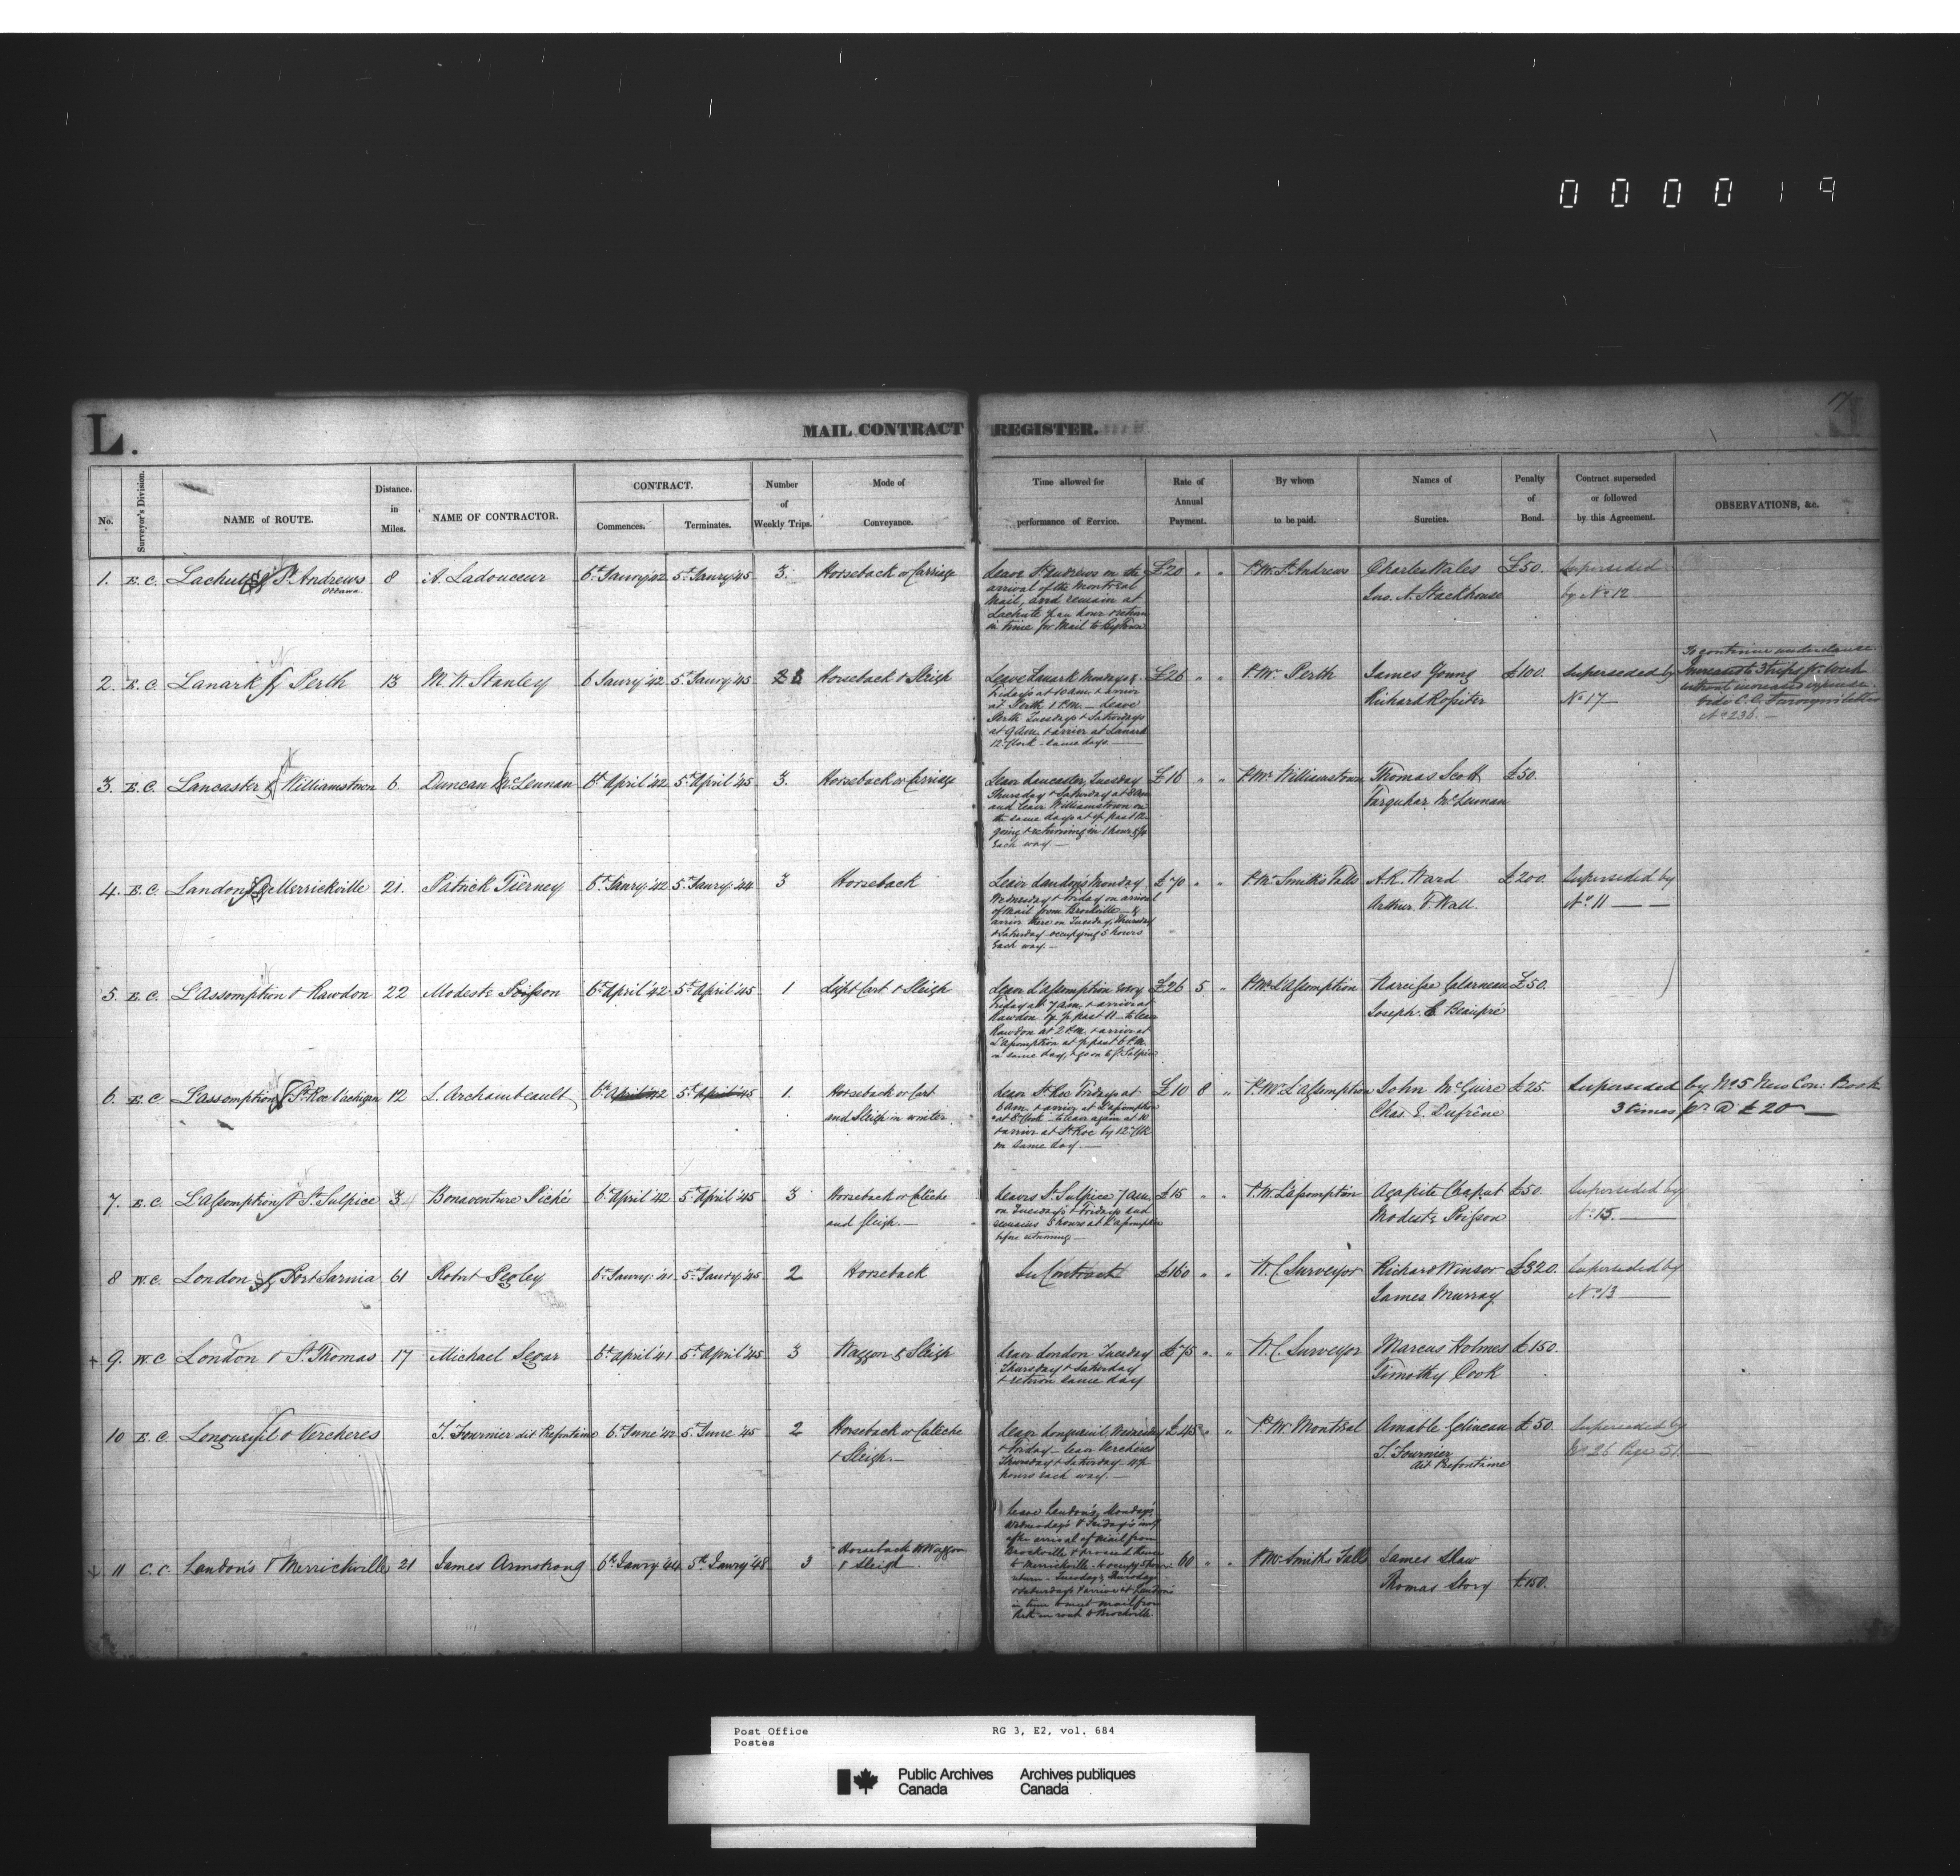 000019
17
L.
MAIL CONTRACT REGISTER.
No.
Surveyor's Division.
NAME of ROUTE.
Distance. in Miles.
NAME OF CONTRACTOR.
CONTRACT.
Commences.
Terminates.
Number of Weekly Trips.
Mode of Conveyance.
Time allowed for performance of Service.
Rate of Annual Payment.
By whom to be paid.
Names of Sureties.
Penalty of Bond.
Contract superseded or followed by this Agreement.
OBSERVATIONS, &c.
1. E.C. Lachute & St. Andrews Ottawa 8 A. Ladouceur 6th Janry '42 5th Janry '45 3. Horseback or Carriage
Leave St Andrews on the
arrival of the Montreal
Mail, and remain at
Lachute ½ an hour & return
in time for Mail to Bytown
£20 " " P.Mr. St. Andrews
Charles Wales
Jno. A. Stackhouse
£50.
Superseded
by No. 12
2. E.C. Lanark & Perth 13 M. W. Stanley 6 Janry '42 5th Janry '45 Horseback & Sleigh
Leave Lanark Mondays &
Fridays at 10 am. & arrive
at Perth 1 P.M. — Leave
Perth Tuesdays & Saturdays
at 9 Am. & arrive at Lanark
12 o'clock same days.
£26 " " P.Mr. Perth
James Young
Richard Rossiter
£100.
Superseded by
No 17
To continue under clause.
Increased to 3 trips pr. Week
without increased expense.
No. 236. —
3. E.C. Lancaster & Williamstown 6 Duncan McLennan 6th April '42 5th April '45 3. Horseback or Carriage
Leave Lancaster, Tuesday
Thursday & Saturday at 8 Am
and leave Williamstown on
the same days at ½ past 12
going & returning in 1 hour & ½
each way —
£16 " " P.Mr. Williamstown
Thomas Scott
Farquhar McLennan
£50.
4. E.C. Landon's & Merrickville 21. Patrick Tierney 6th Janry '42 5th Janry '44 3 Horseback
Leave Landon's Monday
Wednesday & Friday on arrival
of Mail from Brockville &
arrive there on Tuesday, Thursday
& Saturday occupying 5 hours
each way. —
£70 " " P.Mr. Smith's Falls
A. R. Ward
Arthur F. Wall.
£200.
Superseded by
No. 11
5. E.C. L'Assomption & Rawdon 22 Modeste Poisson 6th April '42 5th April '45 1 Light Cart & Sleigh
Leave L'Assomption every
Friday at 7 am. & arrive at
Rawdon by ½ past 11 — to leave
Rawdon at 2 P.M. & arrive at
L'Assomption at ½ past 6 P.M.
on same day, & go on to St. Sulpice
£26 5 " P.Mr. L'Assomption
Narcisse Galarneau
Joseph E Beaupré
£50.
6. E.C. L'assomption & St. Roc l'achigan 12 L. Archambeault 6th April '42 5th April '45 1. Horseback or Cart
and Sleigh in winter.
Leave St. Roc Fridays at
6 am. & arrive at L'assomption
at 8 o'clock to leave again at 10
& arrive at St. Roc by 12 o'clk
on same day. —
£10 8 " P.Mr. L'assomption
John McGuire
Chas. E. Dufrêne
£25.
Superseded by No. 5 New Con: Book
3 times pr @ £20 —
7. E.C. L'Assomption & St. Sulpice 3 Bonaventure Piché 6th April '42 5th April '45 3 Horseback or Caleche
and Sleigh. —
Leaves St. Sulpice 7 am.
on Tuesdays & Fridays and
remains 5 hours at L'assomption
before returning —
£15 " " P.Mr. L'assomption
Agapite Chaput
Modeste Poisson
£50.
Superseded by
No. 15.
8 W.C. London & Port Sarnia 61 Robert Pegley 6th Janry '41 5th Janry '45 2 Horseback
In Contract
£160 " " W. C. Surveyor
Richard Winsor
James Murray
£320.
Superseded by
No. 13
9. W.C. London & St. Thomas 17 Michael Segar 6th April '41 5th April '45 3 Waggon & Sleigh
Leave London Tuesday
Thursday & Saturday
& return same day
£75 " " W. C. Surveyor
Marcus Holmes
Timothy Cook
£150.
10 E.C. Longueuil & Vercheres J. Fournier dit Prefontaine 6. June '42 5. June '45 2 Horseback or Caleche
& Sleigh. —
Leave Longueuil, Wednesday
& Friday — leave Vercheres
Thursday & Saturday — 4½
hours each way. —
£45 " " P.Mr. Montreal
Amable Gelineau
J. Fournier
dit Prefontaine
£50.
Superseded by
No 26 Page 51.
11 C.C. Landon's & Merrickville 21 James Armstrong 6th Janry '44 5th Janry '48 3 Horseback or Waggon
& Sleigh
Leave Landon's, Monday's,
Wednesday's & Friday's
after arrival of Mail from
Brockville & proceed thence
to Merrickville — to occupy 5 hours
return — Tuesdays, Thursdays
& Saturdays & arrive at Landon's
in time to meet mail from
Perth en route to Brockville
60 " " P.Mr. Smith's Falls
James Shaw
Thomas Story
£150.
Post Office
Postes
RG 3, E2, vol. 684
Public Archives
Canada
Archives publiques
Canada